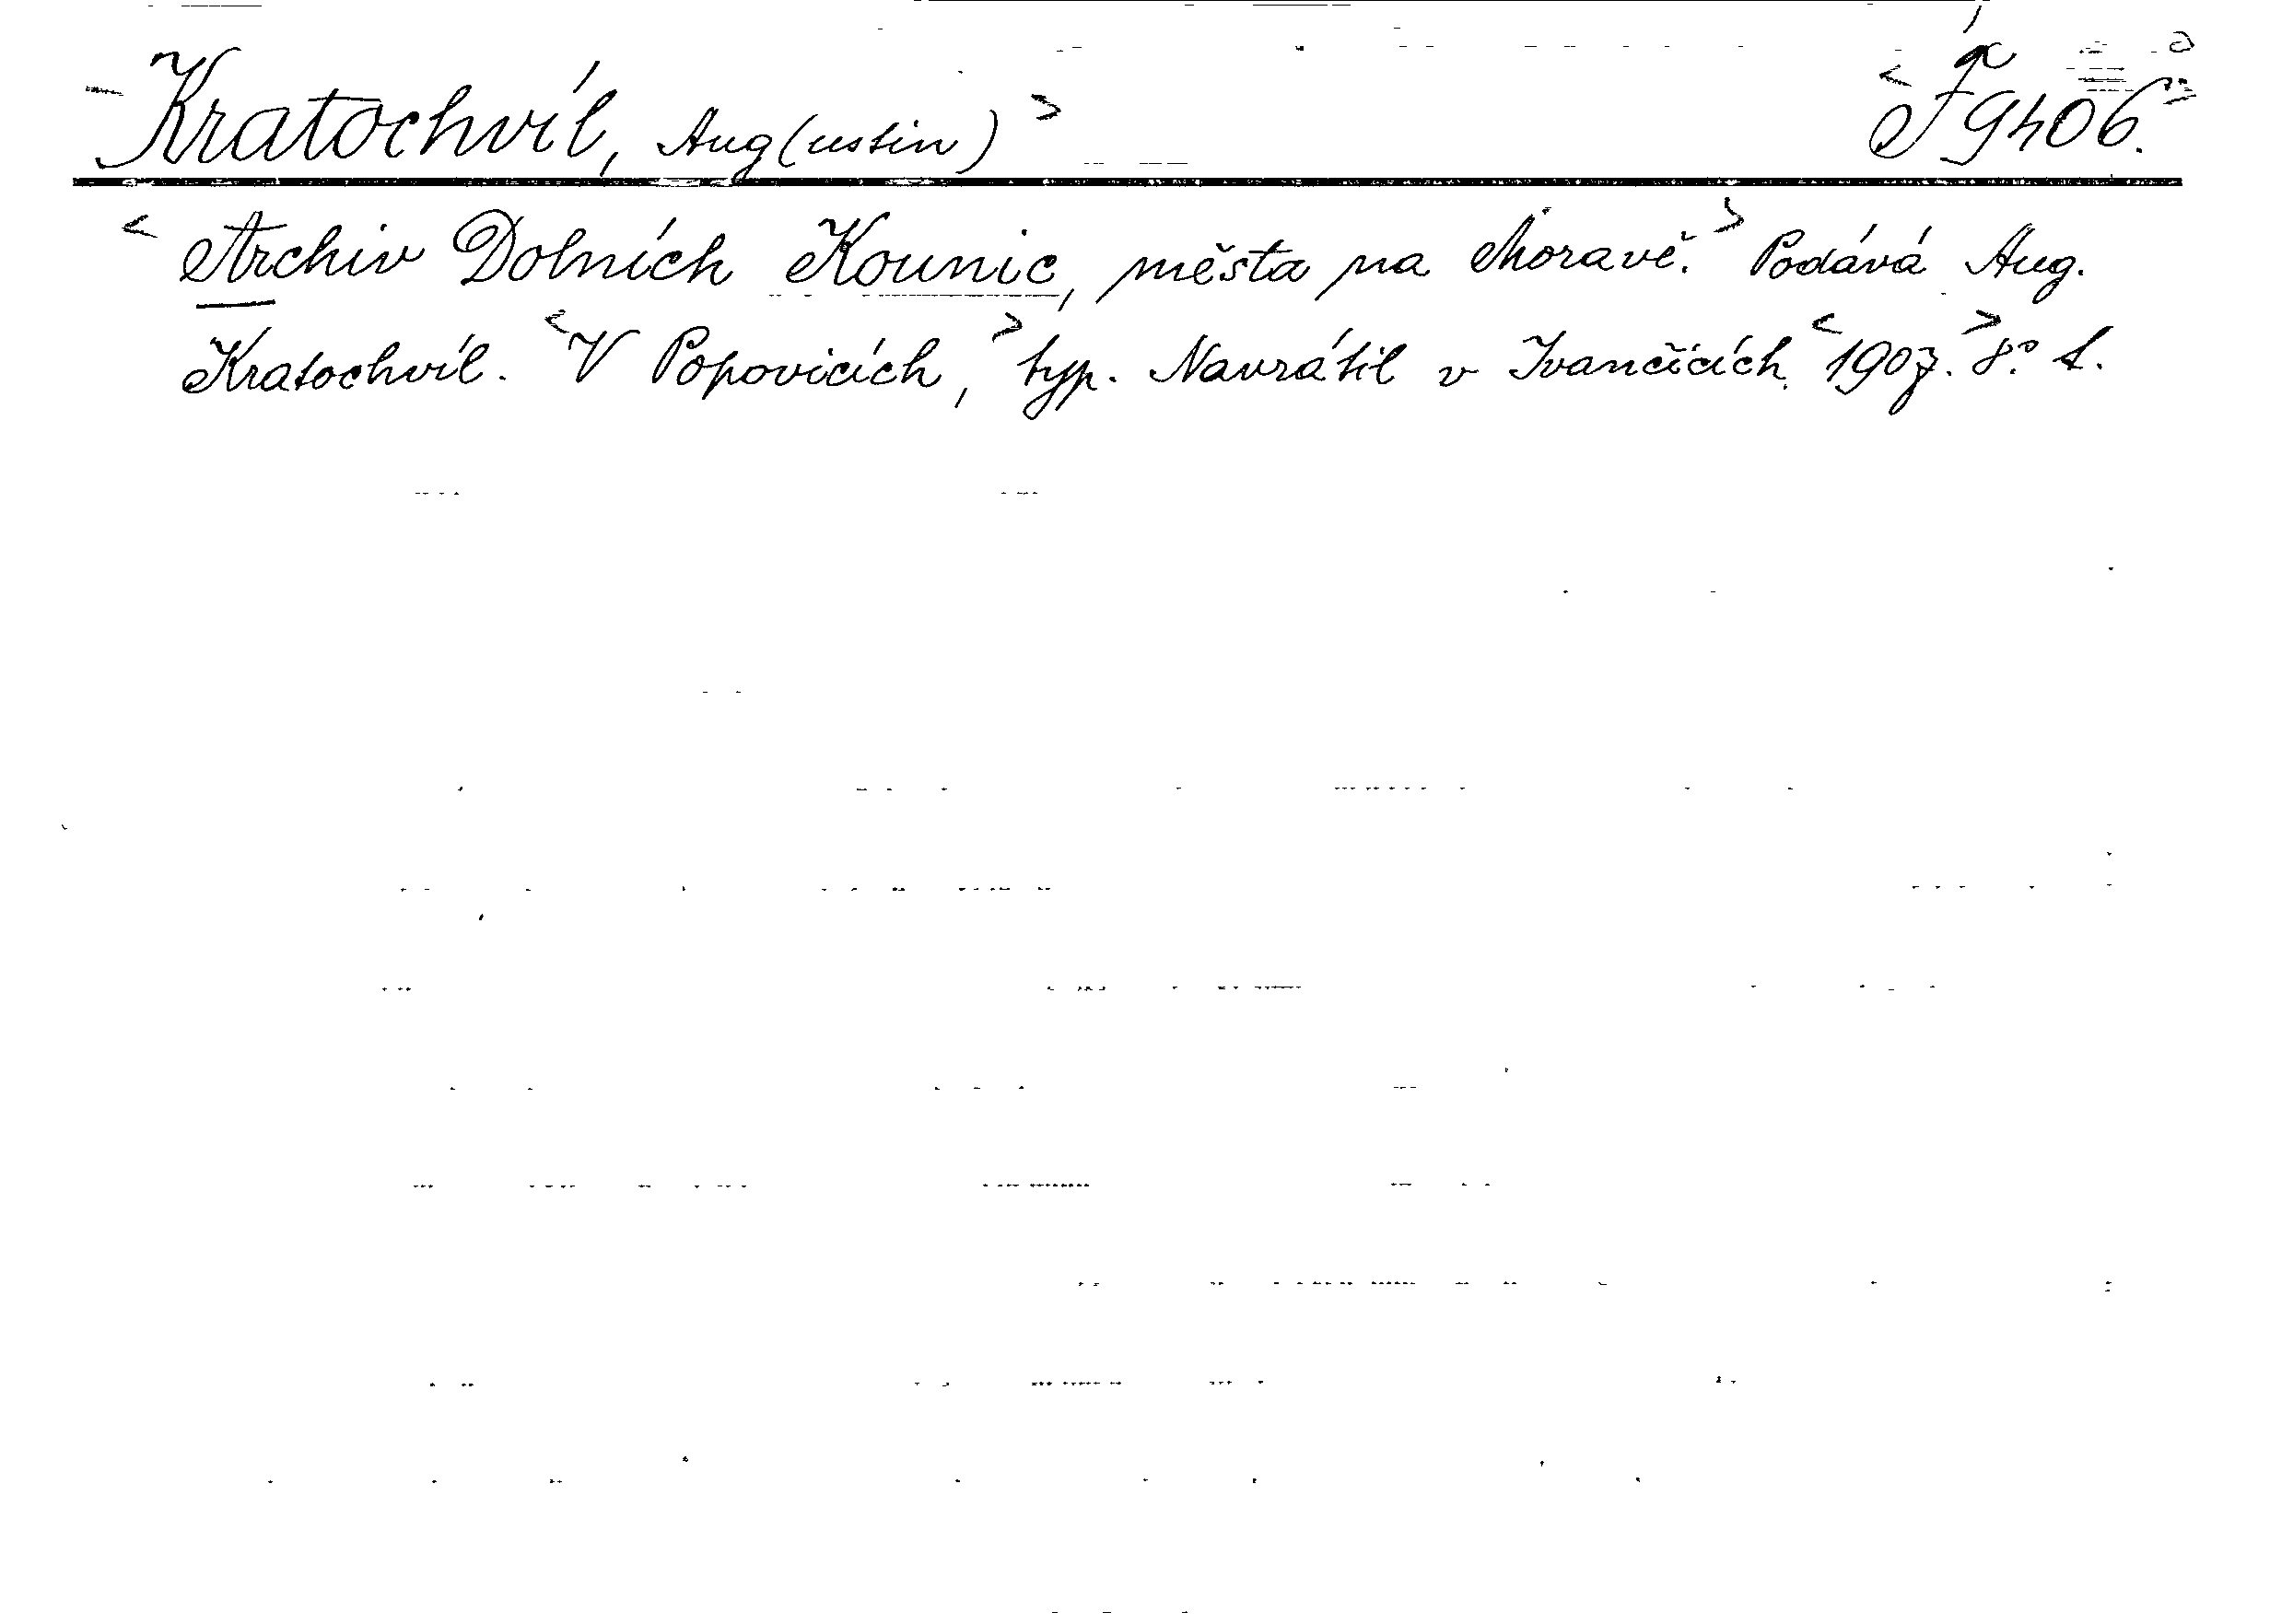 Kratochvíl, Aug(ustin) F 9406.
Archiv Dolních Kounic, města na Moravě. Podává Aug.
Kratochvíl. V Popovicích, typ. Navrátil v Ivančicích 1907. 8°.